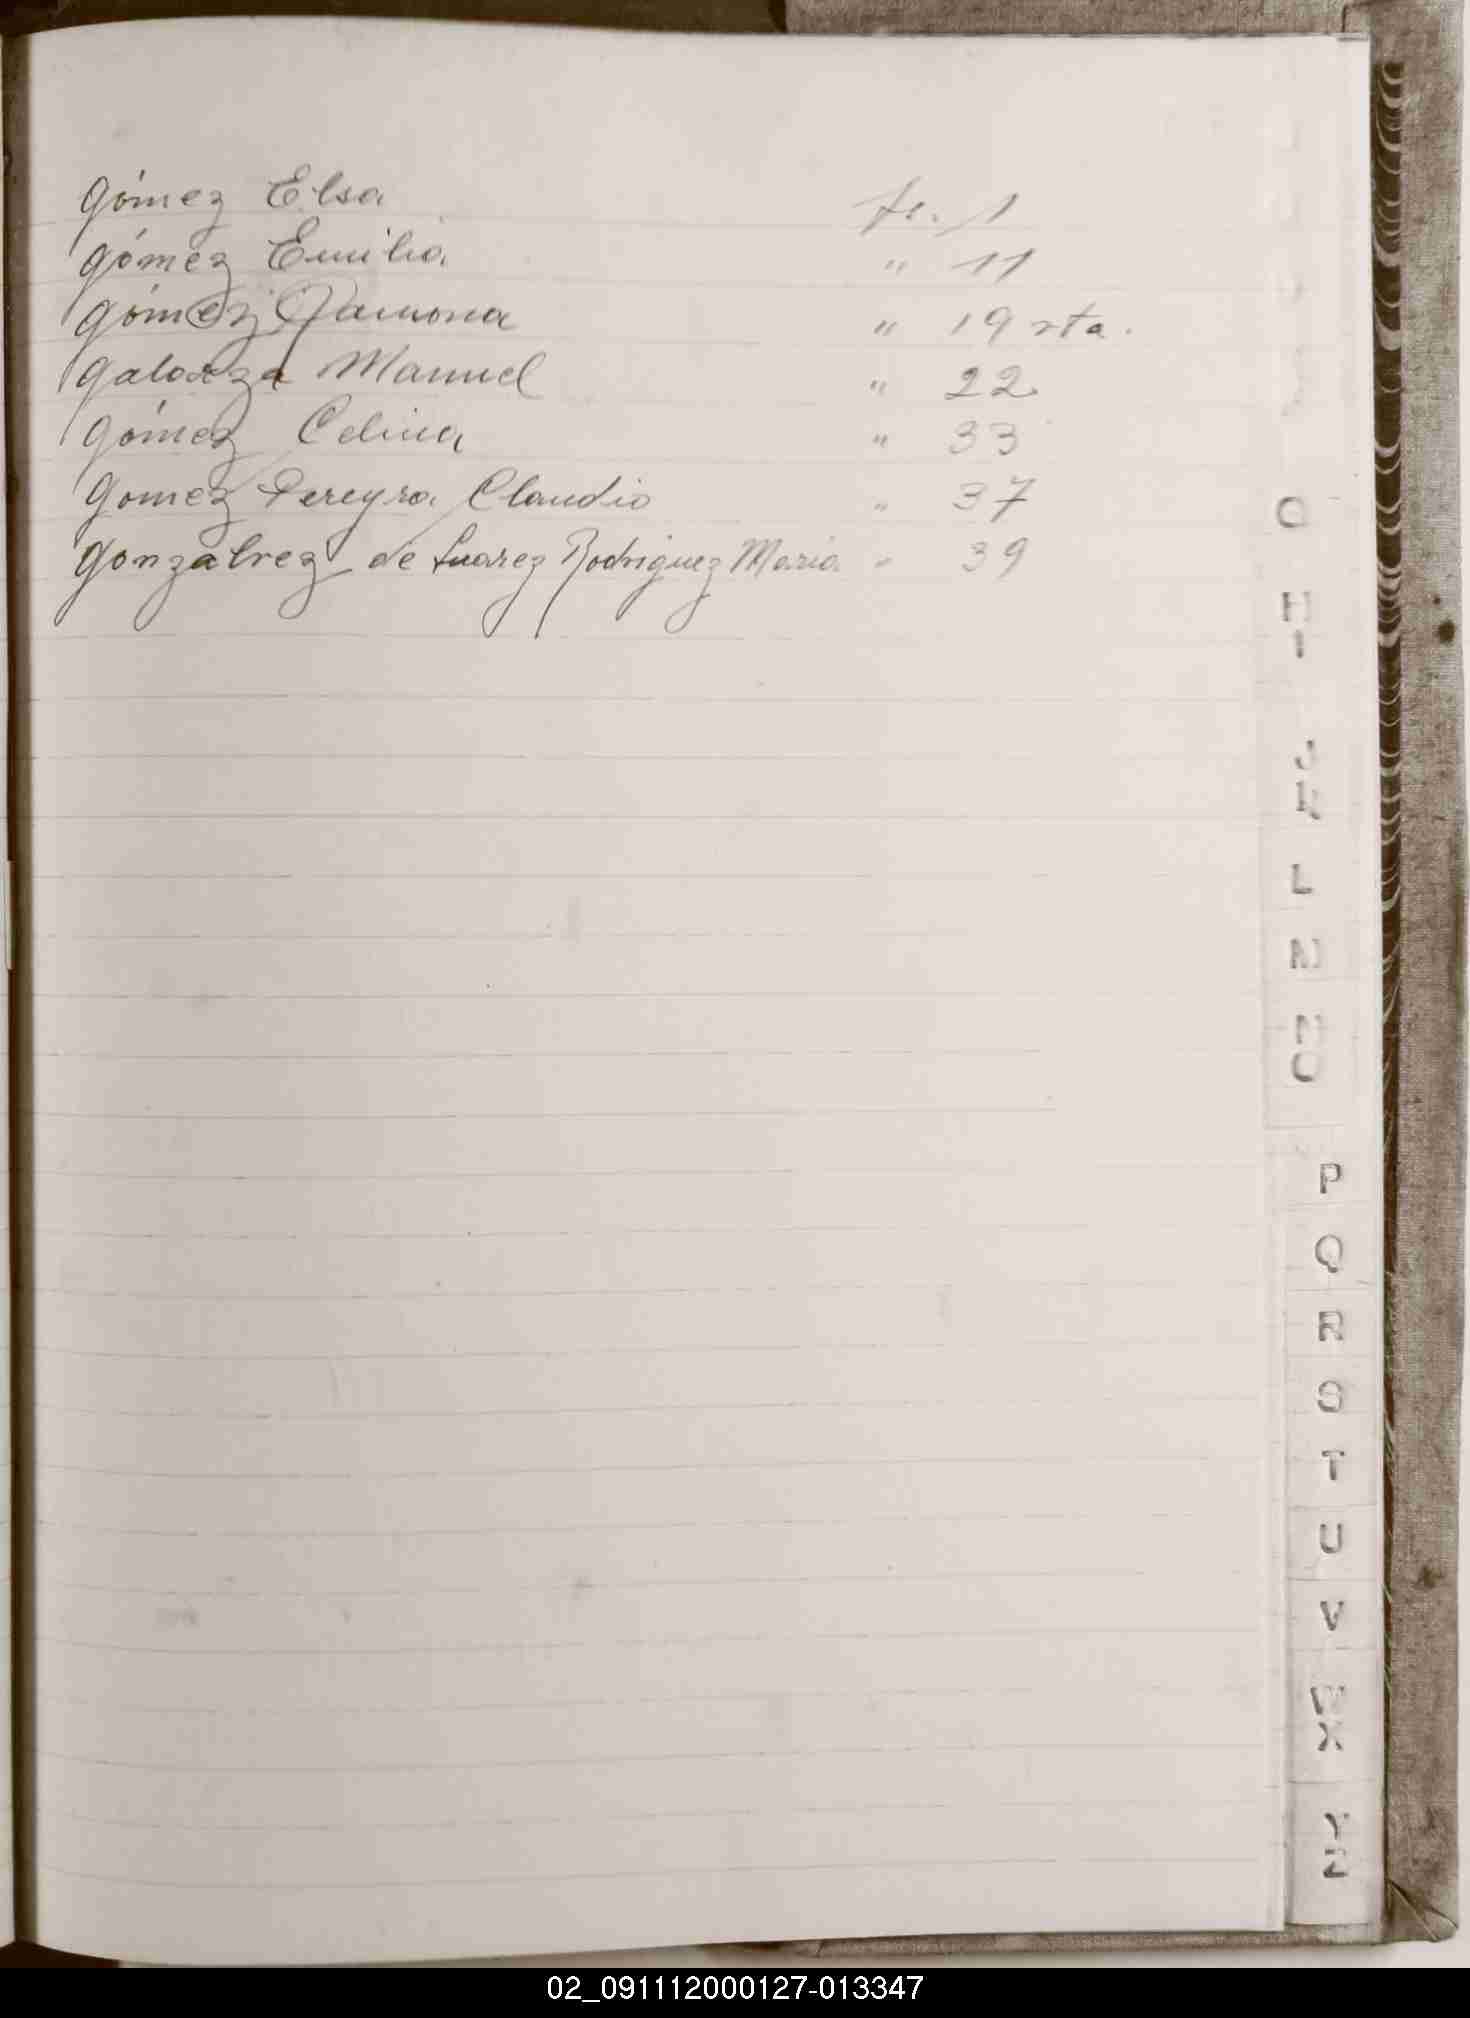 Gómez Elsa fs. 1
Gómez Emilia " 11
Gómez Ramona " 19 vta.
Galarza Manuel " 22
Gómez Celina " 33
Gomez Pereyra Claudio " 37
Gonzalvez de Suarez Rodriguez Maria " 39
G
H
I
J
K
L
M
N
O
P
Q
R
S
T
U
V
W
X
Y
Z
02_091112000127-013347